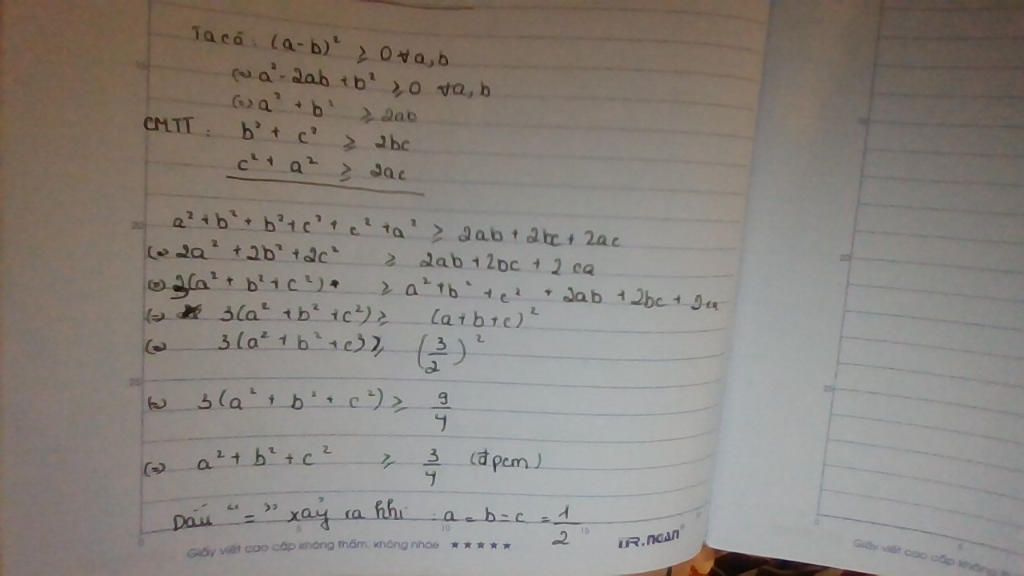 Ta có : (a-b)² ≥ 0 ∀a,b
(=) a² - 2ab + b² ≥ 0 ∀a,b
(=) a² + b² ≥ 2ab
CMTT : b² + c² ≥ 2bc
c² + a² ≥ 2ac
a² + b² + b² + c² + c² + a² ≥ 2ab + 2bc + 2ac
(=) 2a² + 2b² + 2c² ≥ 2ab + 2bc + 2ca
(=) 3(a² + b² + c²) ≥ a² + b² + c² + 2ab + 2bc + 2ca
(=) 3(a² + b² + c²) ≥ (a+b+c)²
(=) 3(a² + b² + c²) ≥ (3/2)²
(=) 3(a² + b² + c²) ≥ 9/4
(=) a² + b² + c² ≥ 3/4 (đpcm)
Dấu "=" xảy ra khi : a = b = c = 1/2
Giấy viết cao cấp không thấm, không nhòe ★★★★★
Giấy viết cao cấp không